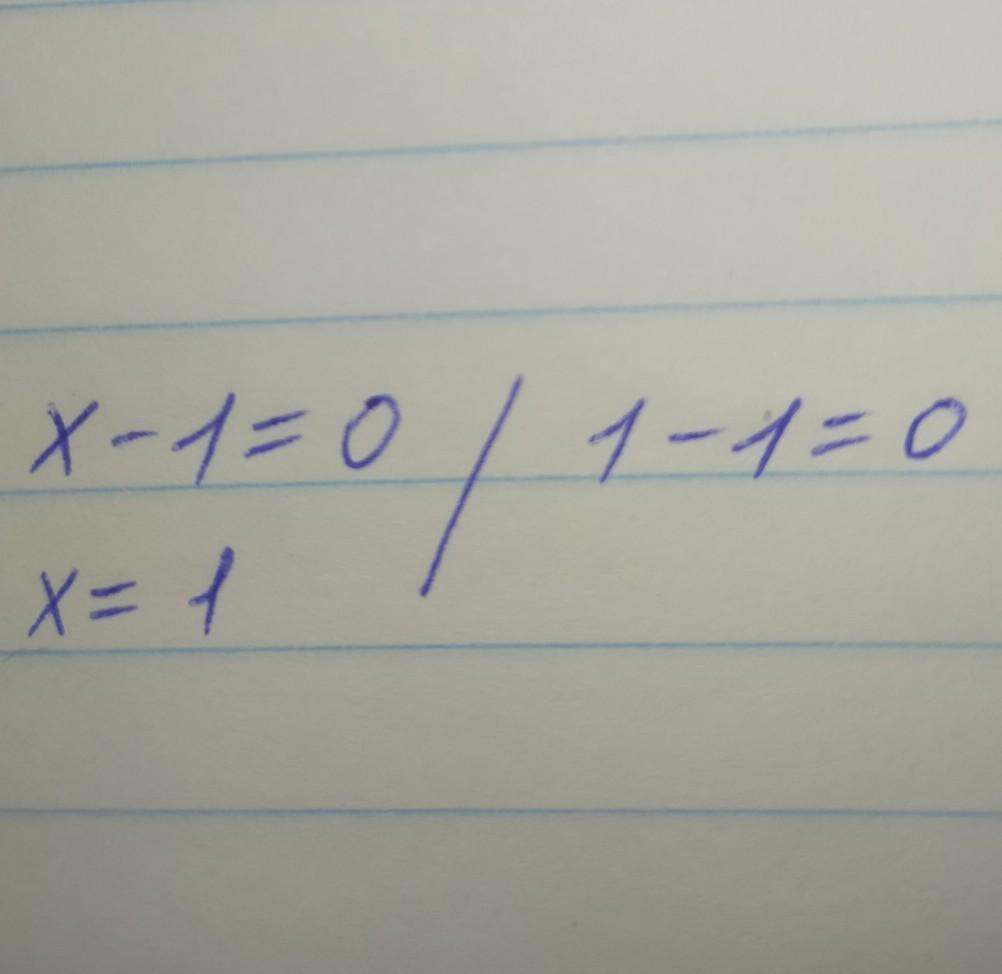 x-1=0 / 1-1=0
x=1